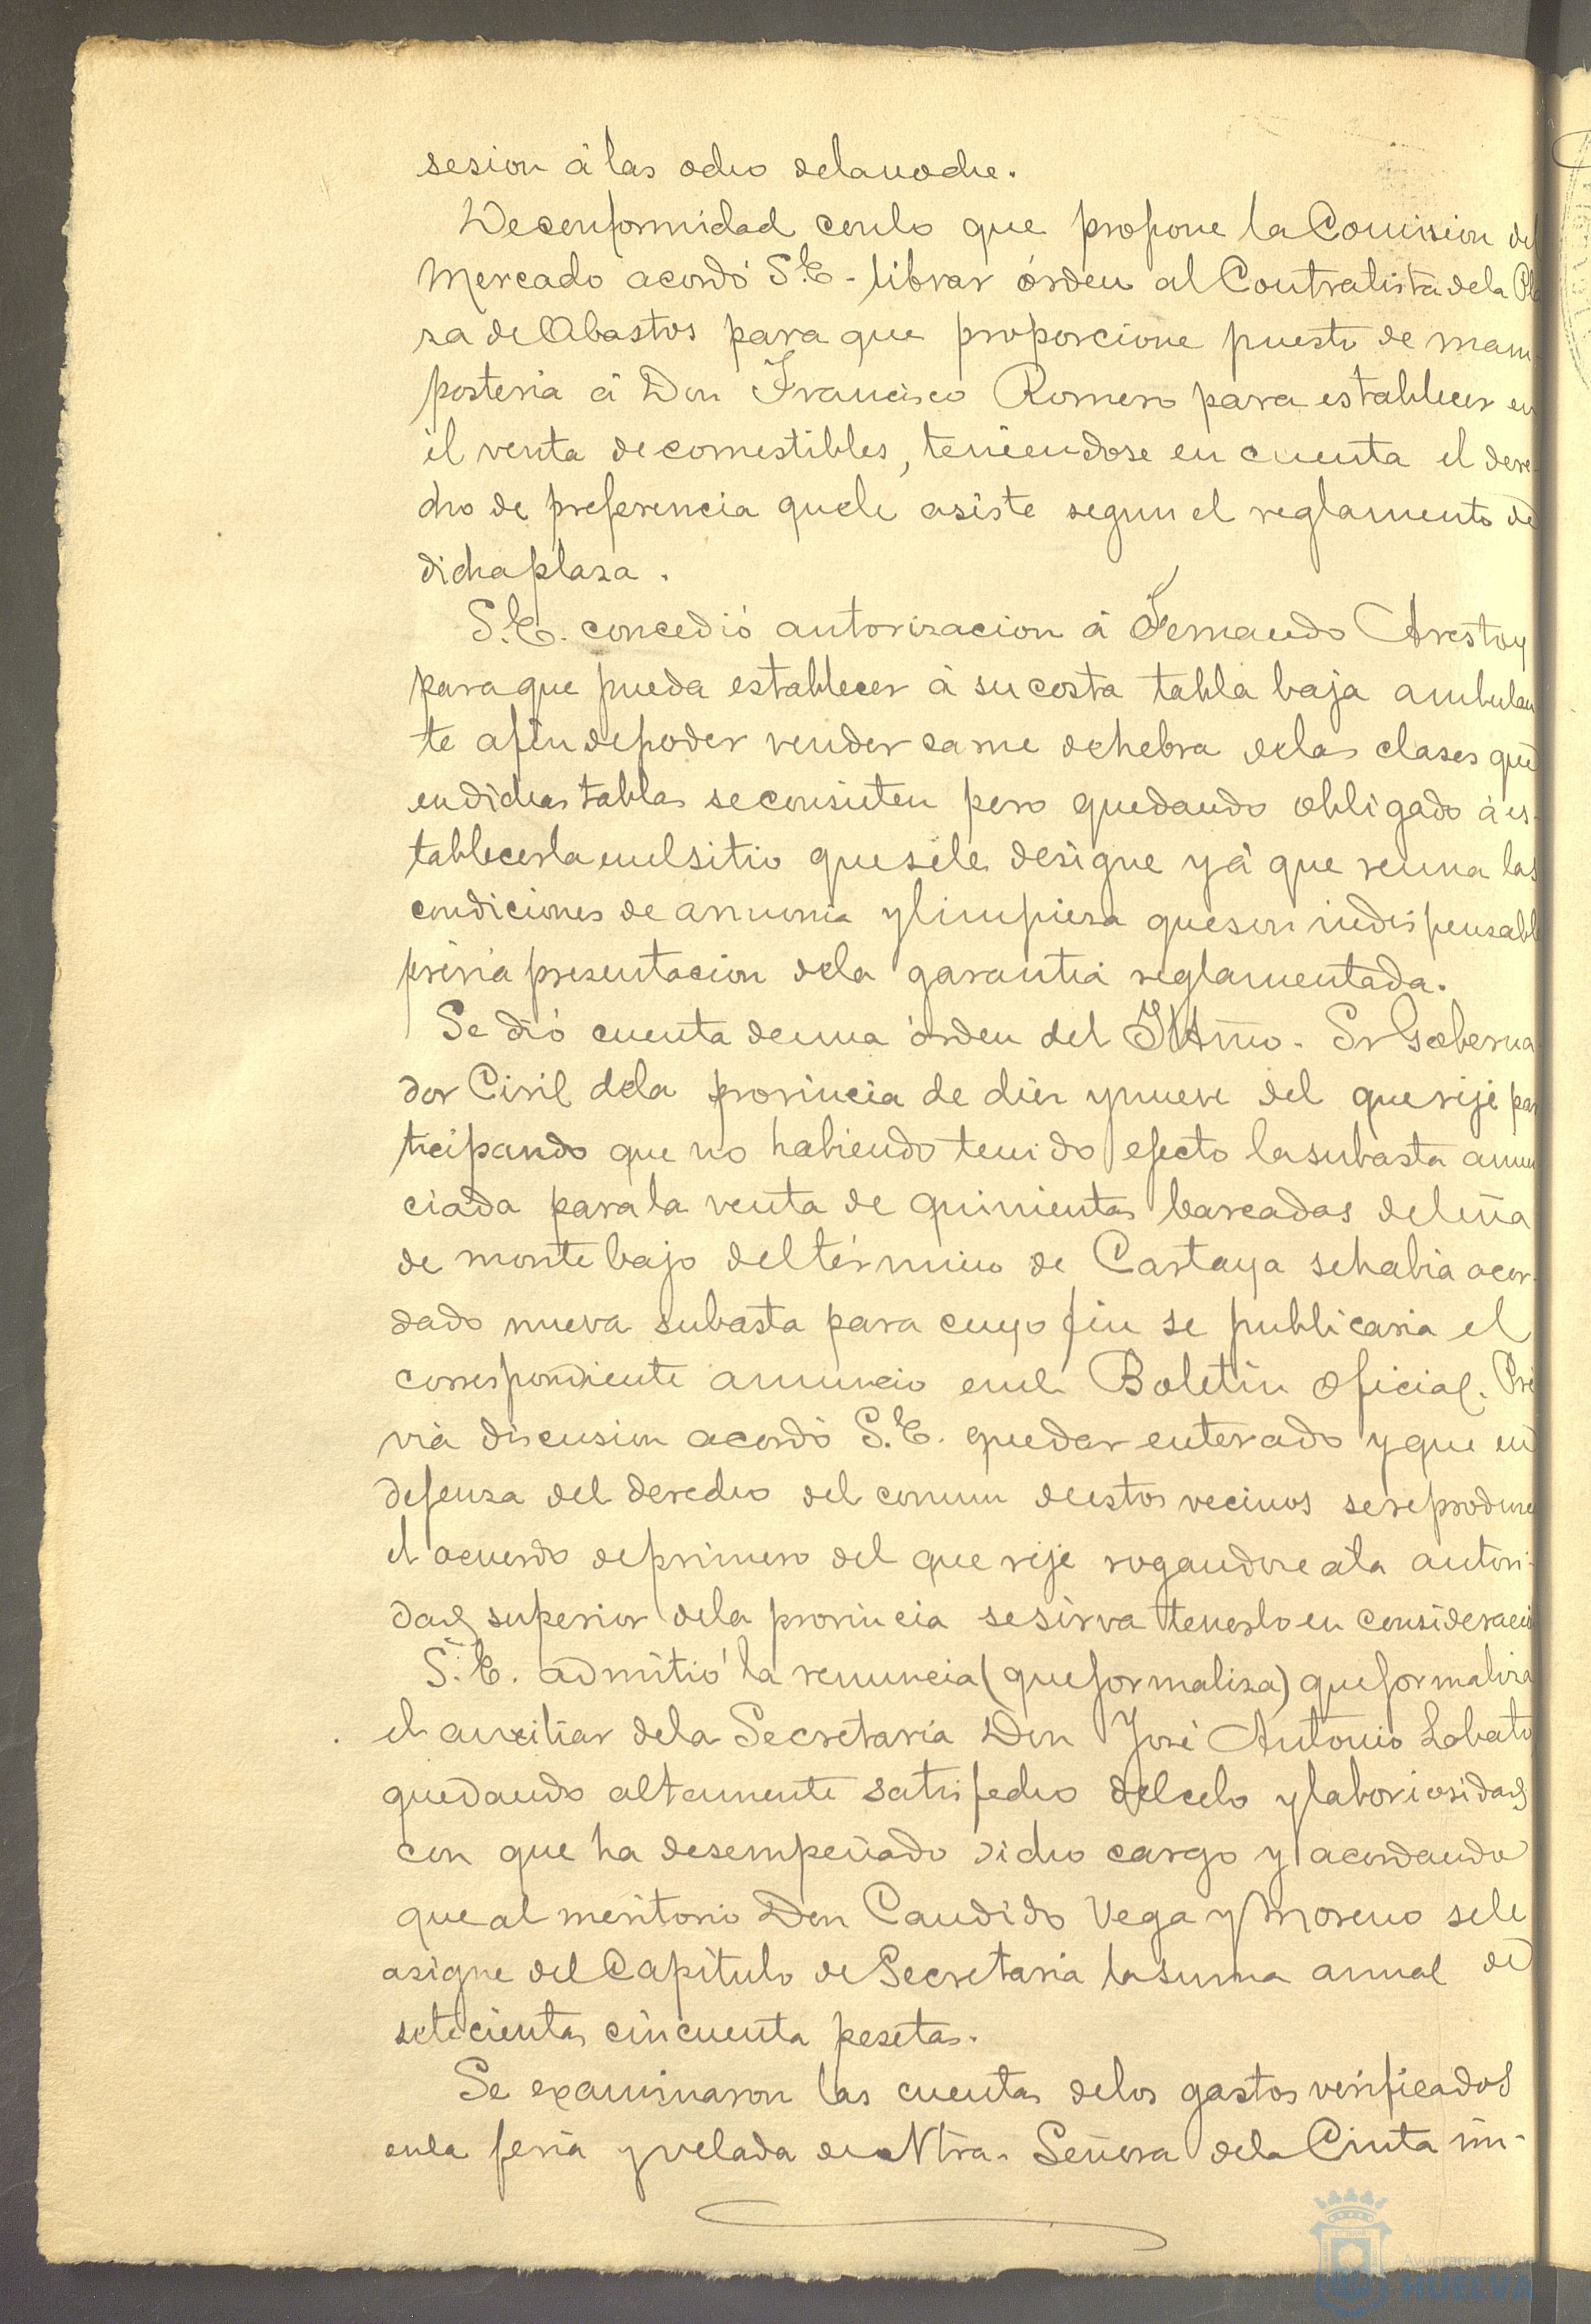 sesion á las ocho delanoche.
Deconformidad conlo que propone la Comision del
Mercado acordó S.E. librar órden al Contratista dela Pla
za de Abastos para que proporcione puesto de mam
posteria á Don Francisco Romero para establecer en
él venta de comestibles, teniendose en cuenta el dere
cho de preferencia quele asiste segun el reglamento de
dicha plaza.
S.E. concedió autorizacion á Fernando Arestoy
para que pueda establecer á su costa tabla baja ambulan
te afin depoder vender carne dehebra delas clases que
endichas tablas seconsiten pero quedando obligado á es-
tablecerla enelsitio quesele designe y á que reuna las
condiciones de armonia ylimpieza queson indispensabl
prévia presentacion dela garantia reglamentada.
Se dió cuenta deuna órden del Iltmo. Sr Goberna
dor Civil dela provincia de diez ynueve del querije par
ticipando que no habiendo tenido efecto lasubasta anun
ciada parala venta de quinientas barcadas deleña
de monte bajo deltérmino de Cartaya sehabia acor-
dado nueva subasta para cuyo fin se publicaria el
correspondiente anuncio enel Boletin oficial. Pré
via discusion acordó S.E. quedar enterado yque en
defensa del derecho del comun deestos vecinos sereproduzca
el acuerdo deprimero del que rije rogandose ála autori-
dad superior dela provincia sesirva tenerlo en consideració
S.E. admitió la renuncia (queformaliza) queformaliza
el auxiliar dela Secretaria Don José Antonio Lobato
quedando altamente satisfecho delcelo ylaboriosidad
con que ha desempeñado dicho cargo y acordando
queal meritorio Don Candido Vega y Moreno sele
asigne del Capítulo de Secretaria lasuma anual de
setecientas cincuenta pesetas.
Se examinaron las cuentas delos gastos verificados
enla feria yvelada de Ntra. Señora dela Cinta im-
Ayuntamiento de
HUELVA